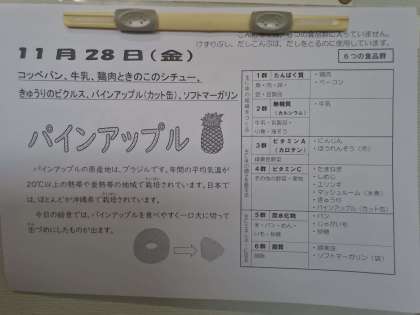 けずりぶし、だしこんぶは、だしをとるのに使用しています。
11月28日(金)
コッペパン、牛乳、鶏肉ときのこのシチュー、
きゅうりのピクルス、パインアップル(カット缶)、ソフトマーガリン
パインアップル
パインアップルの原産地は、ブラジルです。年間の平均気温が
20℃以上の熱帯や亜熱帯の地域で栽培されています。日本で
は、ほとんどが沖縄県で栽培されています。
今日の給食では、パインアップルを食べやすく一口大に切って
缶づめにしたものが出ます。
6つの食品群
1群 たんぱく質
・鶏肉
・ベーコン
2群 無機質
(カルシウム)
・牛乳
3群 ビタミンA
(カロテン)
緑黄色野菜
・にんじん
・ほうれんそう
4群 ビタミンC
その他の野菜・果物
・たまねぎ
・しめじ
・エリンギ
・マッシュルーム(水煮)
・きゅうり
・パインアップル(カット缶)
5群 炭水化物
・パン
・じゃがいも
・砂糖
6群 脂質
・ソフトマーガリン